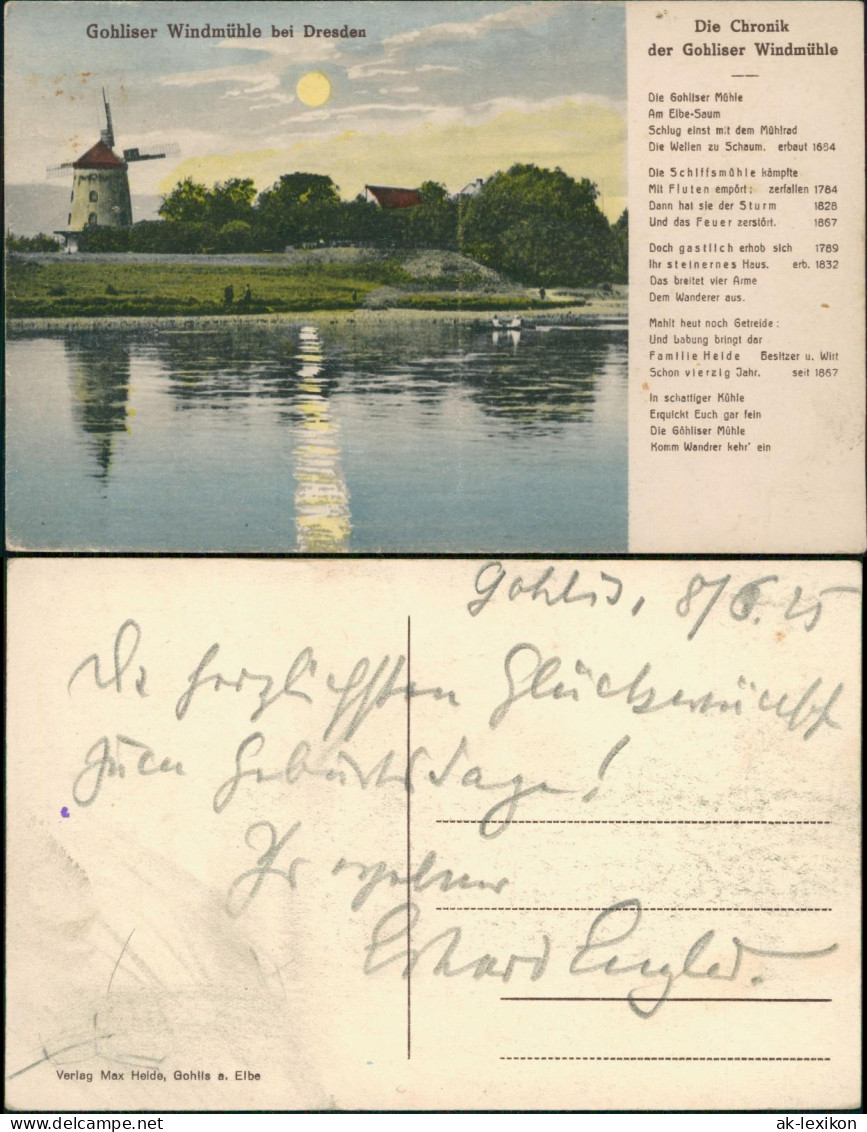 Gohliser Windmühle bei Dresden
Die Chronik
der Gohliser Windmühle
Die Gohliser Mühle
Am Elbe-Saum
Schlug einst mit dem Mühlrad
Die Wellen zu Schaum. erbaut 1684
Die Schiffsmühle kämpfte
Mit Fluten empört: zerfallen 1784
Dann hat sie der Sturm 1828
Und das Feuer zerstört. 1867
Doch gastlich erhob sich 1789
Ihr steinernes Haus. erb. 1832
Das breitet vier Arme
Dem Wanderer aus.
Mahlt heut noch Getreide:
Und Labung bringt dar
Familie Heide Besitzer u. Wirt
Schon vierzig Jahr. seit 1867
In schattiger Kühle
Erquickt Euch gar fein
Die Göhliser Mühle
Komm Wandrer kehr' ein
Gohlis, 8/6.25
Die herzlichsten Glückwünsche
zum Geburtstage!
Ihr ergebener
Erhard Engler.
Verlag Max Heide, Gohlis a. Elbe
ak-lexikon